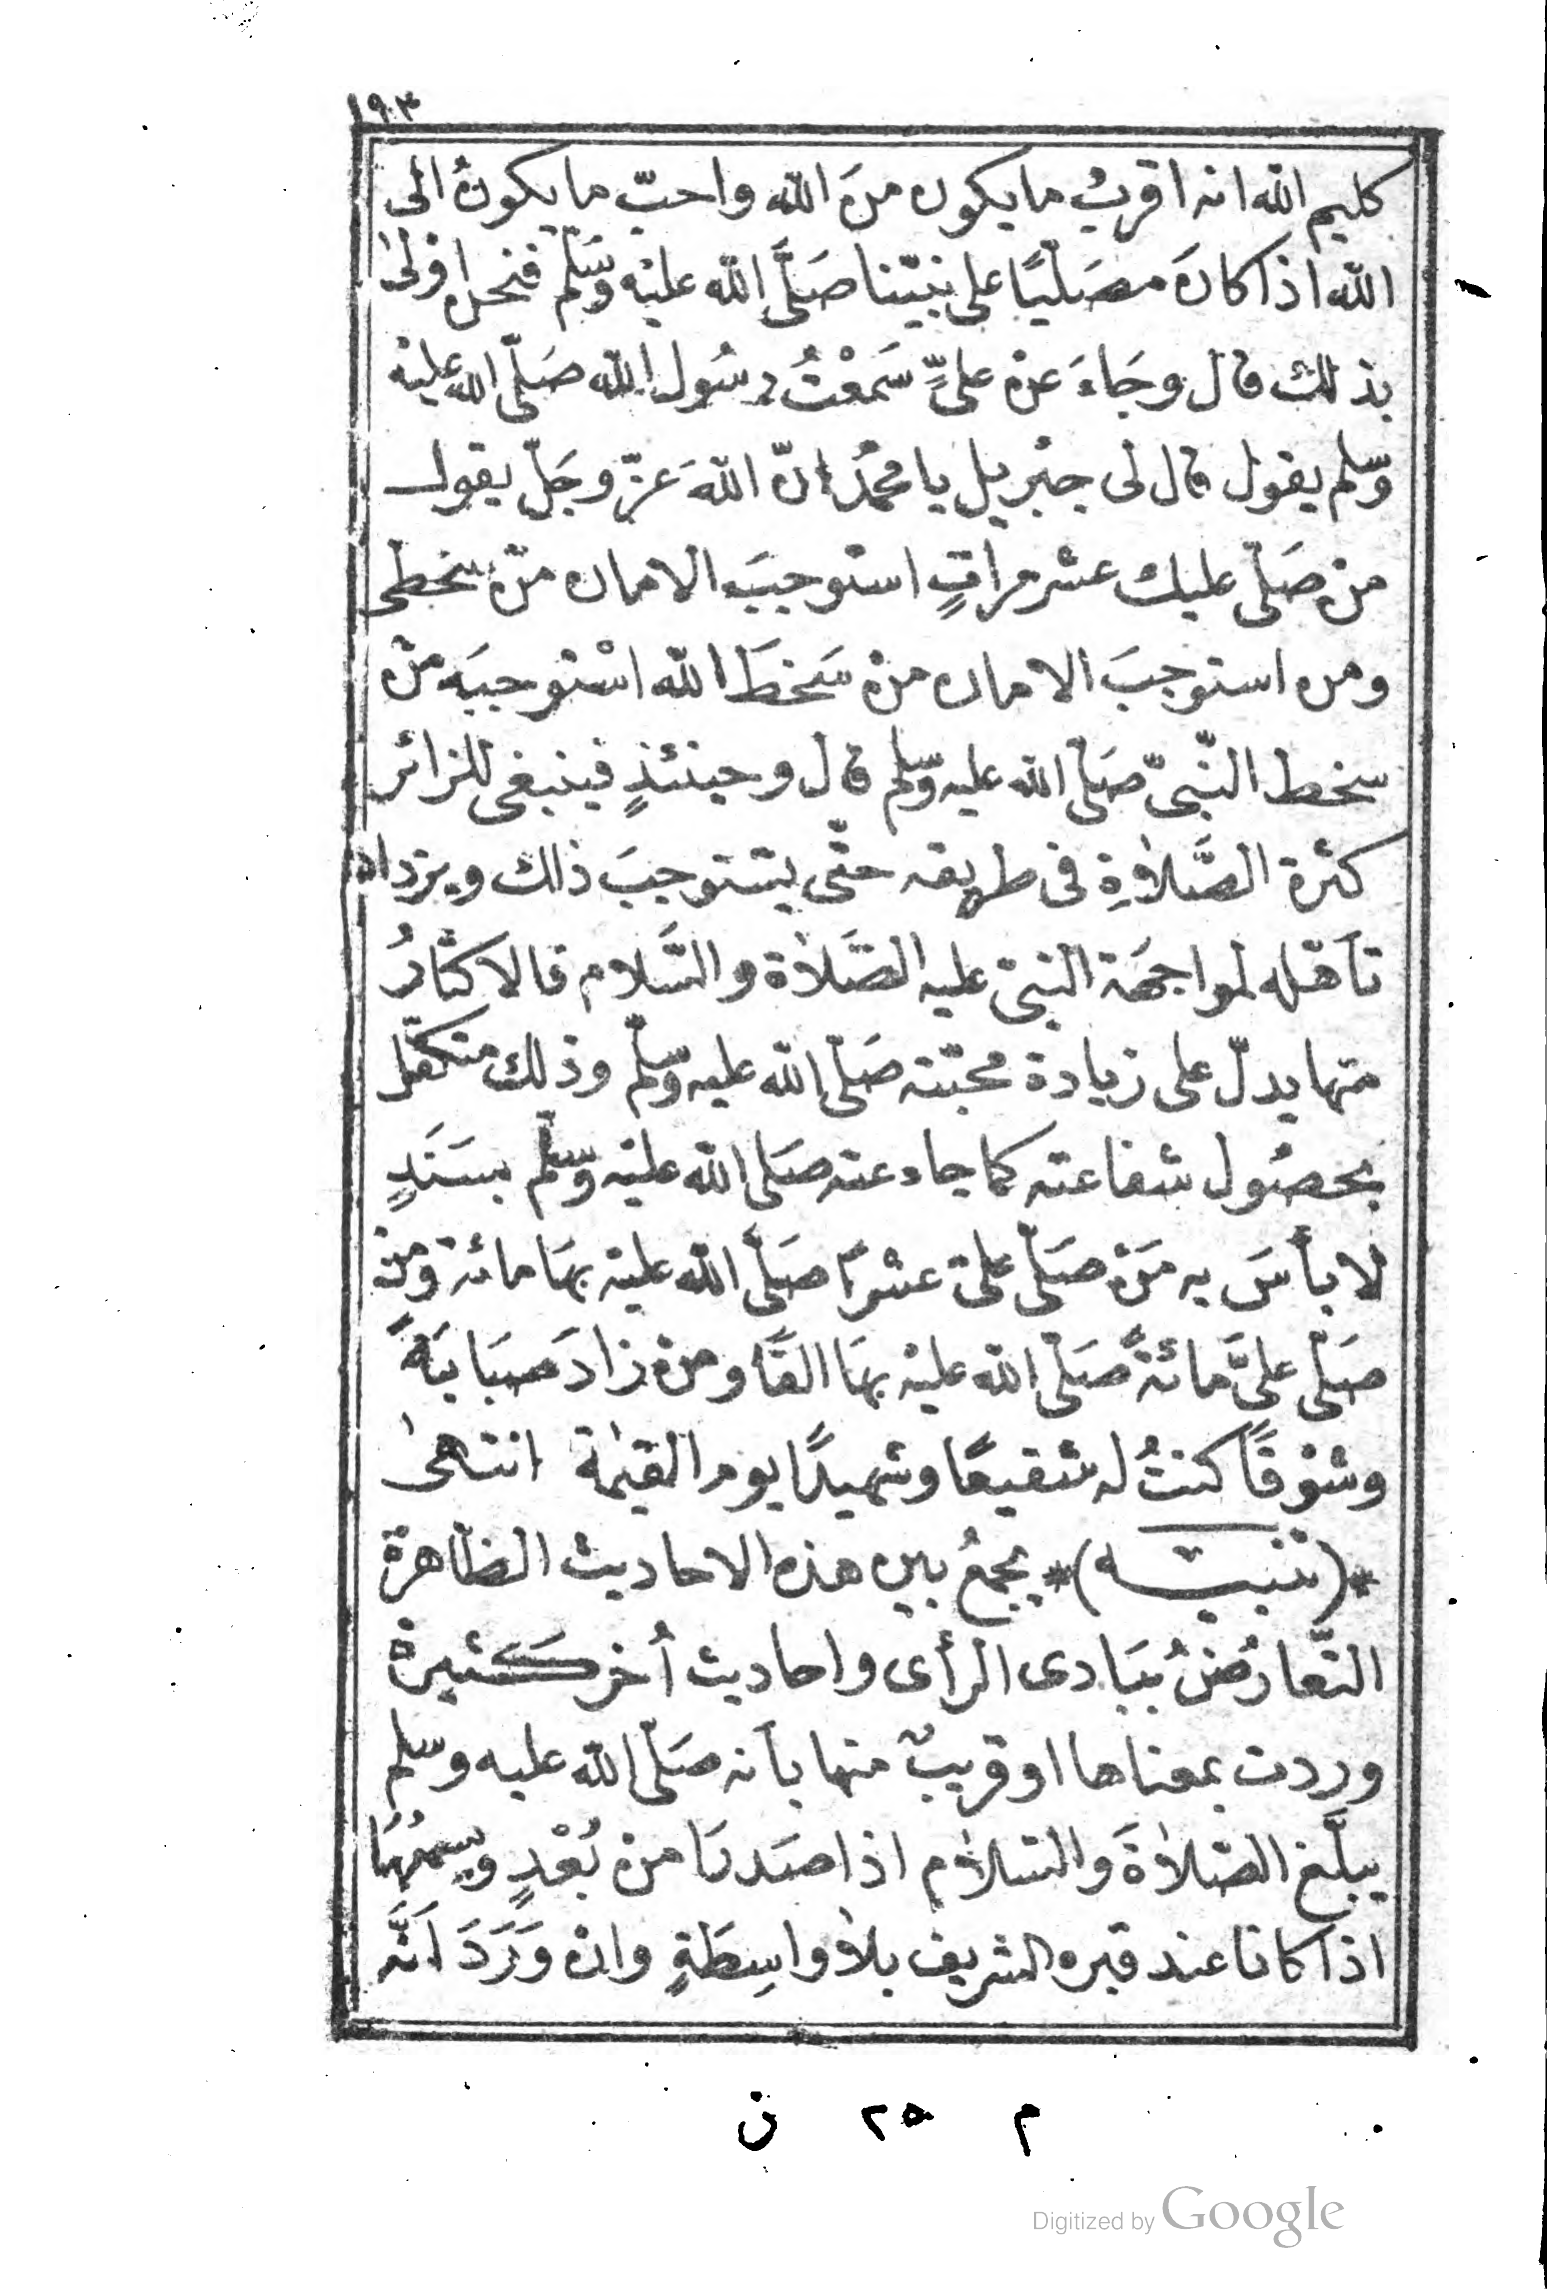 ١٩٣
كليم الله انه اقربُ ما يكون منَ الله واحبّ ما يكونُ الى
الله اذا كانَ مصَليًا على نبيّنا صَلَّى الله عليْه وَسَلّم فنحن اوْلىٰ
بذلك قال وجَاءَ عنْ علىٍّ سَمعْتُ رسُول الله صَلّى الله عليْه
وسّلم يقول قال لى جبْريل يا محمّدُ انّ اللهَ عزّ وجَلّ يقول
منْ صَلّى عليك عشر مراتٍ استوجبَ الامان منْ سخطى
ومن استوجبَ الامان منْ سَخطَ الله اسْتوجبَه منْ
سخط النّبىّ صَلّى الله عليه وسّلم قال وحينئذٍ فينبغى للزائر
كثرة الصَّلاٰةِ فى طريقه حتّى يستوجبَ ذلك ويزداد
تأهّله لمواجهَة النبىّ عليه الصَّلاٰة والسَّلام فالاكثارُ
منها يدلّ على زيادة محبّته صَلّى الله عليه وسّلم وذلك متكفّل
بحصُول شفاعته كما جاء عنه صَلى الله عليْه وسّلم بسَنَدٍ
لا بأسَ به مَنْ صَلّى علىّ عشرًا صَلّى الله عليْه بهَا مائة وَمنْ
صَلّى علىَّ مائةً صَلّى الله عليْه بهَا الفًا ومنْ زادَ صبَابَةً
وشوْقًا كنتُ له شفيعًا وشهيدًا يوم القيٰمة انتهىٰ
*(تنبيه)* يجمعُ بين هذه الاحاديث الظّاهرة
التّعارُضُ ببَادى الرأى واحاديث أُخر كَثيرة
وردت بمعناها او قريبٌ منها بأنه صَلّى الله عليه وسلم
يبلَّغ الصّلاٰةَ وَالسّلاٰم اذا صَدرَا منْ بُعْدٍ ويسمعُهُمَا
اذا كانا عند قبره الشريف بلاٰ واسِطَةٍ وانْ وَرَدَ اَنَّه
م ٢٥ ن
Digitized by Google